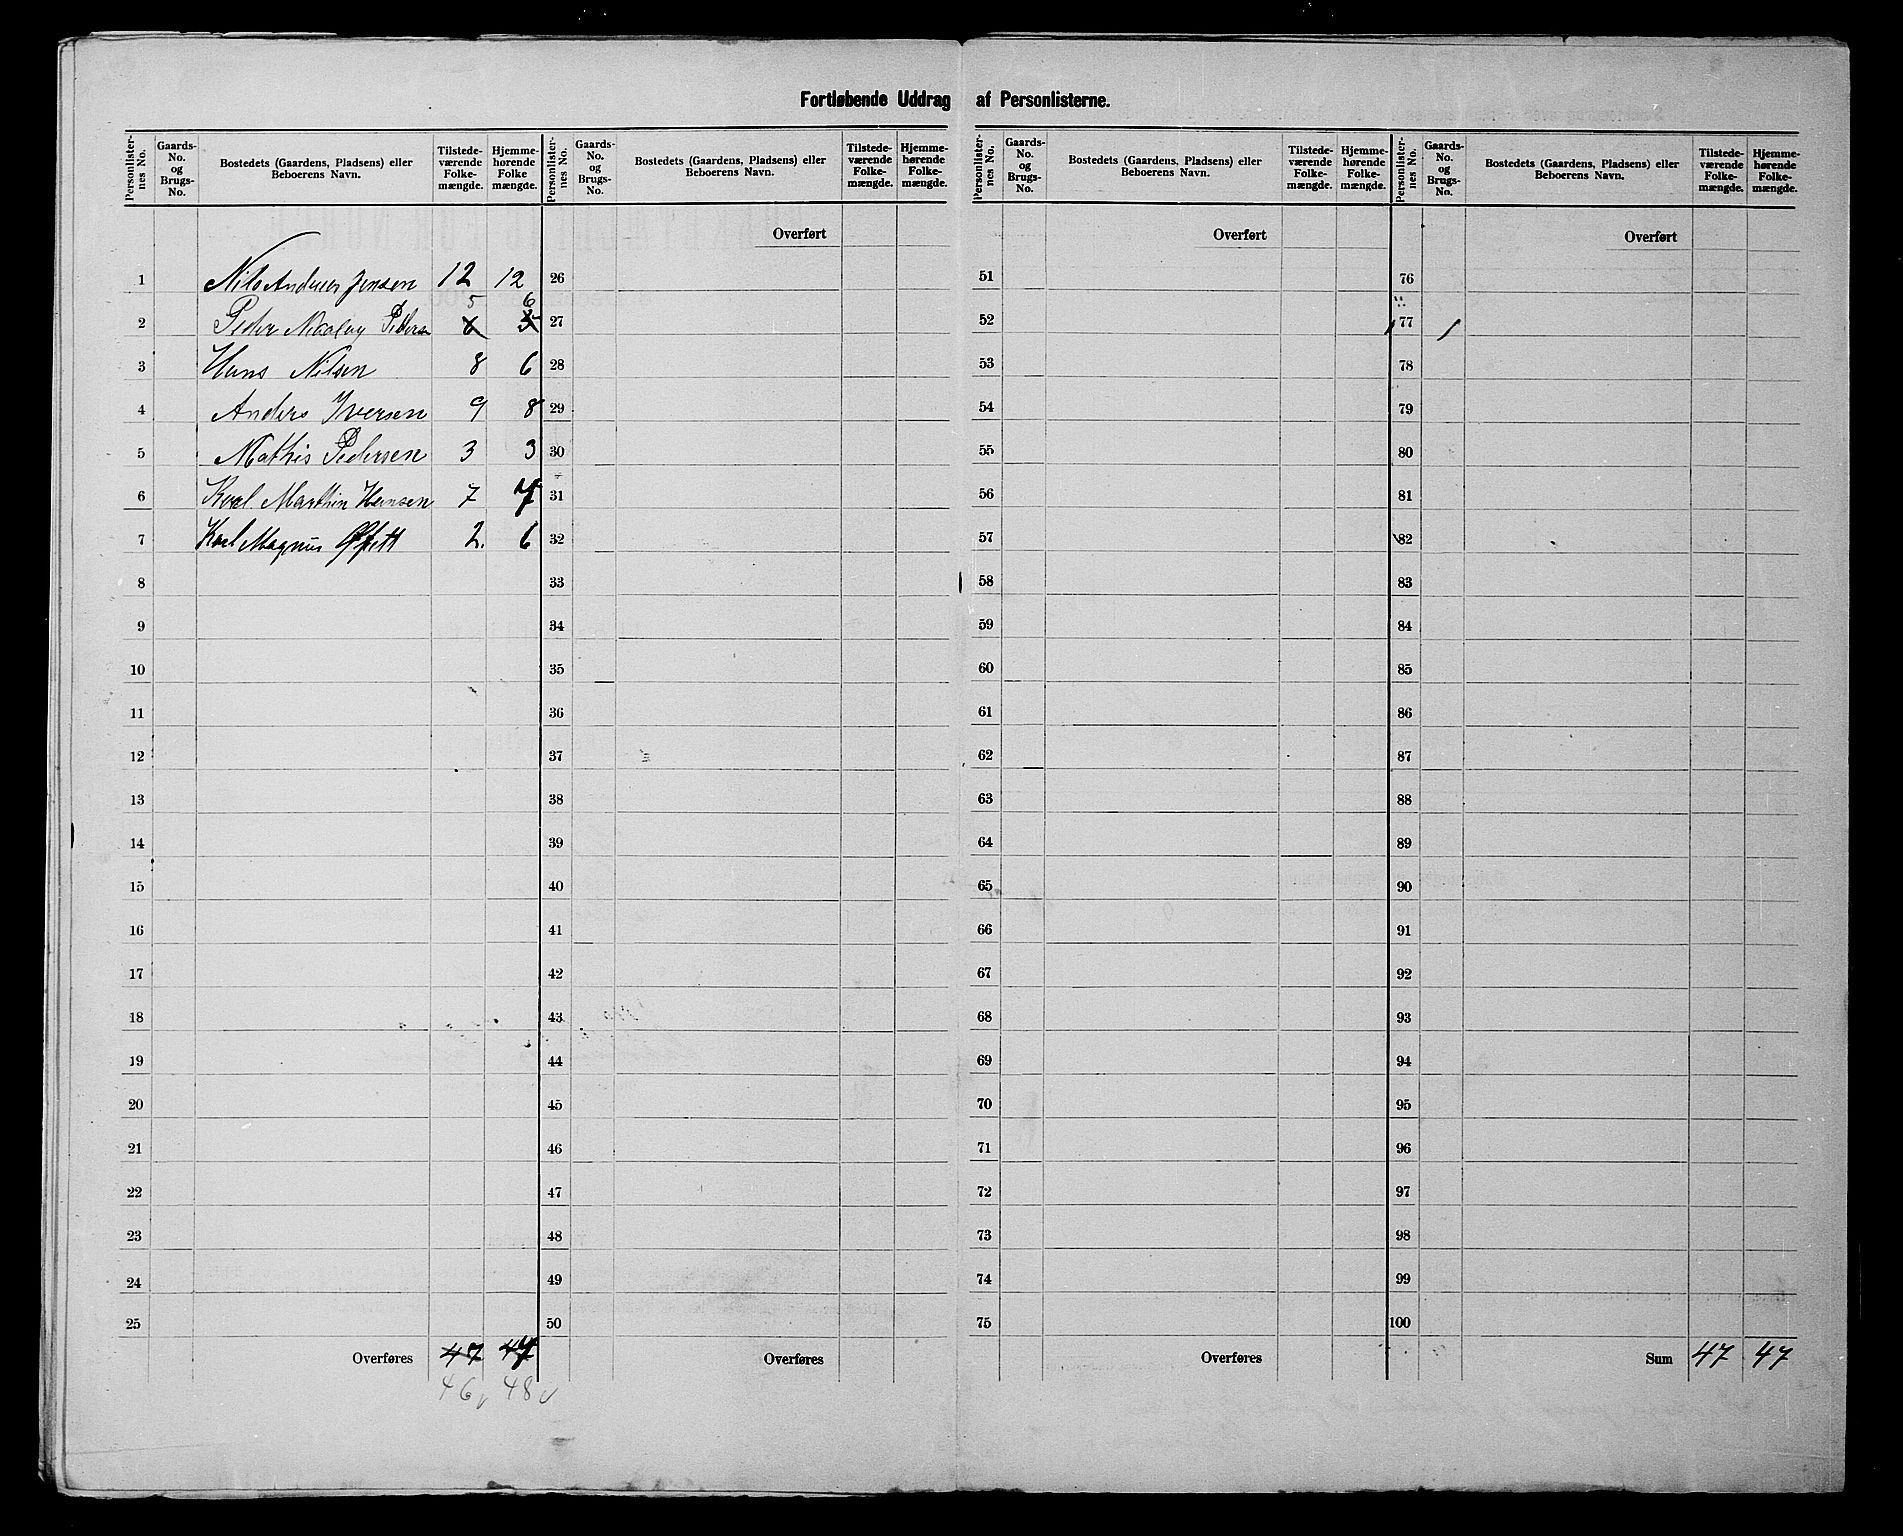 Fortløbende Uddrag af Personlisterne.
Personlister-nes No. | Gaards-No. og Brugs-No. | Bostedets (Gaardens, Pladsens) eller Beboerens Navn. | Tilstede-værende Folke-mængde. | Hjemme-hørende Folke mængde. | Personlister-nes No. | Gaards-No. og Brugs-No. | Bostedets (Gaardens, Pladsens) eller Beboerens Navn. | Tilstede-værende Folke-mængde. | Hjemme-hørende Folke-mængde. | Personlister-nes No. | Gaards-No. og Brugs-No. | Bostedets (Gaardens, Pladsens) eller Beboerens Navn. | Tilstede-værende Folke-mængde. | Hjemme-hørende Folke-mængde. | Personlister-nes No. | Gaards-No. og Brugs-No. | Bostedets (Gaardens, Pladsens) eller Beboerens Navn. | Tilstede-værende Folke-mængde. | Hjemme-hørende Folke-mængde.
Overført Overført Overført
1 Nils Andreas Jensen 12 12 26 51 76
5 6
2 Peder Nikolay Peders 6 5 27 52 77
3 Hans Nilsen 8 6 28 53 78
4 Anders Iversen 9 8 29 54 79
5 Mathis Pedersen 3 3 30 55 80
6 Karl Marthin Hansen 7 7 31 56 81
7 Karl Magnus 2. 6 32 57 82
8 33 58 83
9 34 59 84
10 35 60 85
11 36 61 86
12 37 62 87
13 38 63 88
14 39 64 89
15 40 65 90
16 41 66 91
17 42 67 92
18 43 68 93
19 44 69 94
20 45 70 95
21 46 71 96
22 47 72 97
23 48 73 98
24 49 74 99
25 50 75 100
Overføres 47 47 Overføres Overføres Sum 47 47
46 48